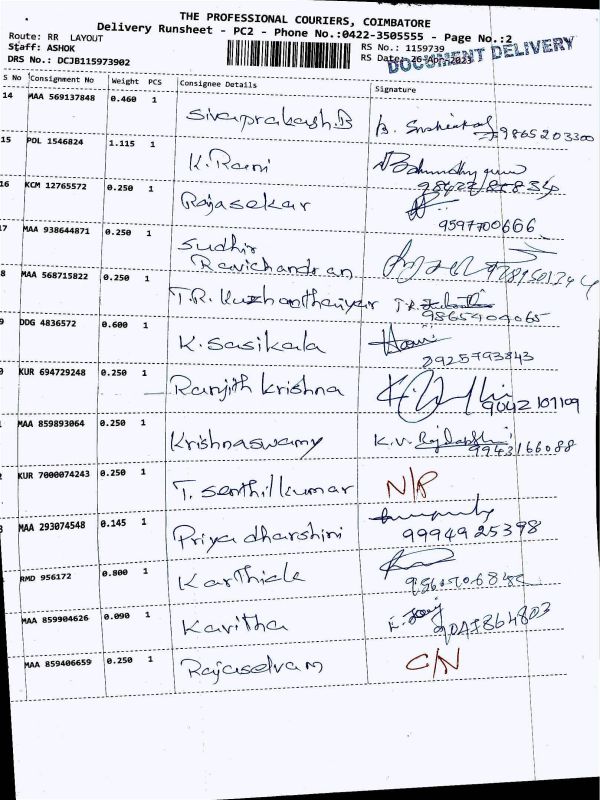 THE PROFESSIONAL COURIERS, COIMBATORE
Delivery Runsheet - PC2 - Phone No.:0422-3505555 - Page No.:2
Route: RR LAYOUT
Staff: ASHOK
RS No.: 1159739
DRS No.: DCJB115973902
RS Date: 26-Apr-2023
DOCUMENT DELIVERY
S No Consignment No Weight PCS Consignee Details Signature
14 MAA 569137848 0.460 1 Sivaprakash.B B. 9865203300
15 POL 1546824 1.115 1 K. Rani
16 KCM 12765572 0.250 1 Rajasekar 9597700666
7 MAA 938644871 0.250 1 Sudhir
Ravichandran
8 MAA 568715822 0.250 1 T.R. Kuzhanthaiyar T.R.
9865409065
9 DDG 4836572 0.600 1 K. Sasikala
2925793843
0 KUR 694729248 0.250 1 Ranjith krishna 9042101109
MAA 859893064 0.250 1 Krishnaswamy K.V.
9943166088
KUR 7000074243 0.250 1 T. Senthilkumar N/P
3 MAA 293074548 0.145 1 Priya dharshini
9994925398
RMD 956172 0.800 1 Karthick
MAA 859904626 0.090 1 Kavitha 9047864803
MAA 859406659 0.250 1 Rajaselvam C/N